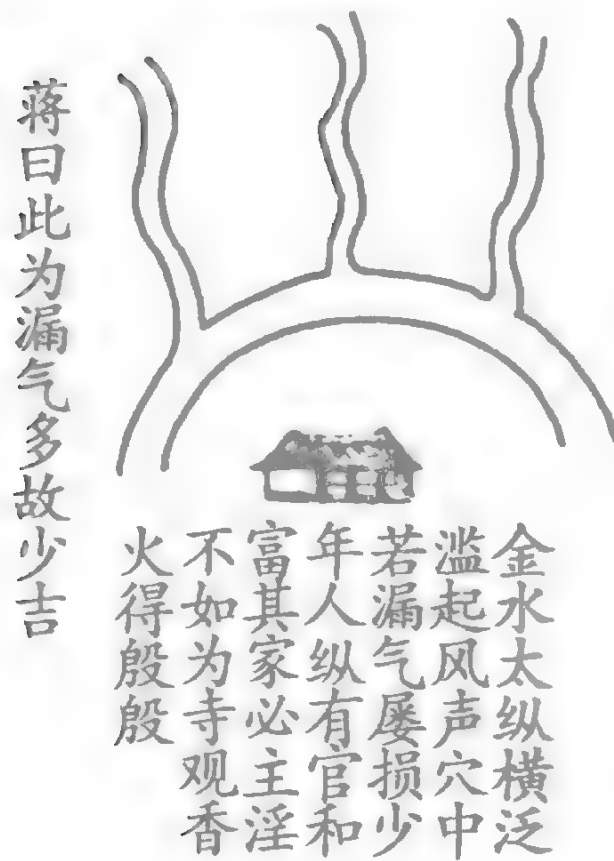 金水太纵横泛
滥起风声穴中
若漏气屡损少
年人纵有官和
富其家必主淫
不如为寺观香
火得殷殷
蒋曰此为漏气多故少吉